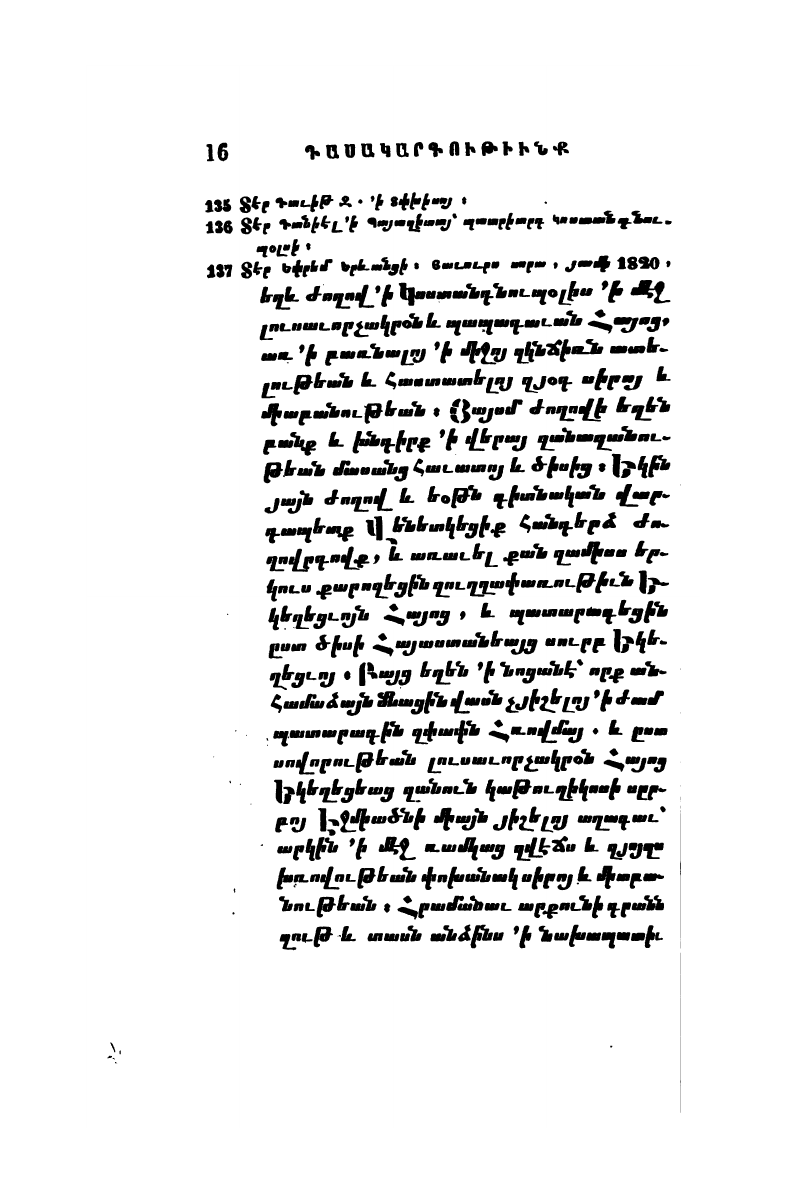 16 ԴԱՍԱԿԱՐԳՈՒԹԻՒՆՔ
135 Տէր Դաւիթ Զ . ՚ի Տփխիսոյ ։
136 Տէր Դանիէլ ՚ի Պայազիտոյ՝ պատրիարգ Կոստանդնու-
պօլսի ։
137 Տէր Եփրեմ Երևանցի ։ Յաւուրս սորա , յամի 1820 ,
եղև Ժողով ՚ի Կոստանդնուպօլիս ՚ի մէջ
լուսաւորչակրօն և պապադաւան Հայոց,
առ ՚ի բառնալոյ ՚ի միջոյ զկնճիռն ատե-
լութեան և Հաստատելոյ զյօդ սիրոյ և
միաբանութեան ։ Յայսմ Ժողովի եղեն
բանք և խնդիրք ՚ի վերայ զանազանու-
թեան մասանց Հաւատոյ և ծիսից ։ Էին
յայն Ժողով և եօթն գիտնական վար-
դապետք Վենետկեցիք Հանդերձ Ժո-
ղովրդովք, և առաւել քան զամիսս եր-
կուս քարոզեցին զուղղափառութիւն Ե-
կեղեցւոյն Հայոց , և պատարագեցին
ըստ ծիսի Հայաստանեայց սուրբ Եկե-
ղեցւոյ ։ Բայց եղեն ՚ի նոցանէ՝ որք ան-
Համաձայն մնացին վասն չյիշելոյ ՚ի Ժամ
պատարագին զփափն Հռովմայ . և ըստ
սովորութեան լուսաւորչակրօն Հայոց
Եկեղեցեաց զանուն կաթուղիկոսի սըր-
բոյ Էջմիածնի միայն յիշելոյ աղագաւ՝
արկին ՚ի մէջ ռամկաց զվէճս և զյոյզս
խռովութեան փոխանակ սիրոյ և միաբա-
նութեան ։ Հրամանաւ արքունի գրանն
զութ և տասն անձինս ՚ի նախապատիւ